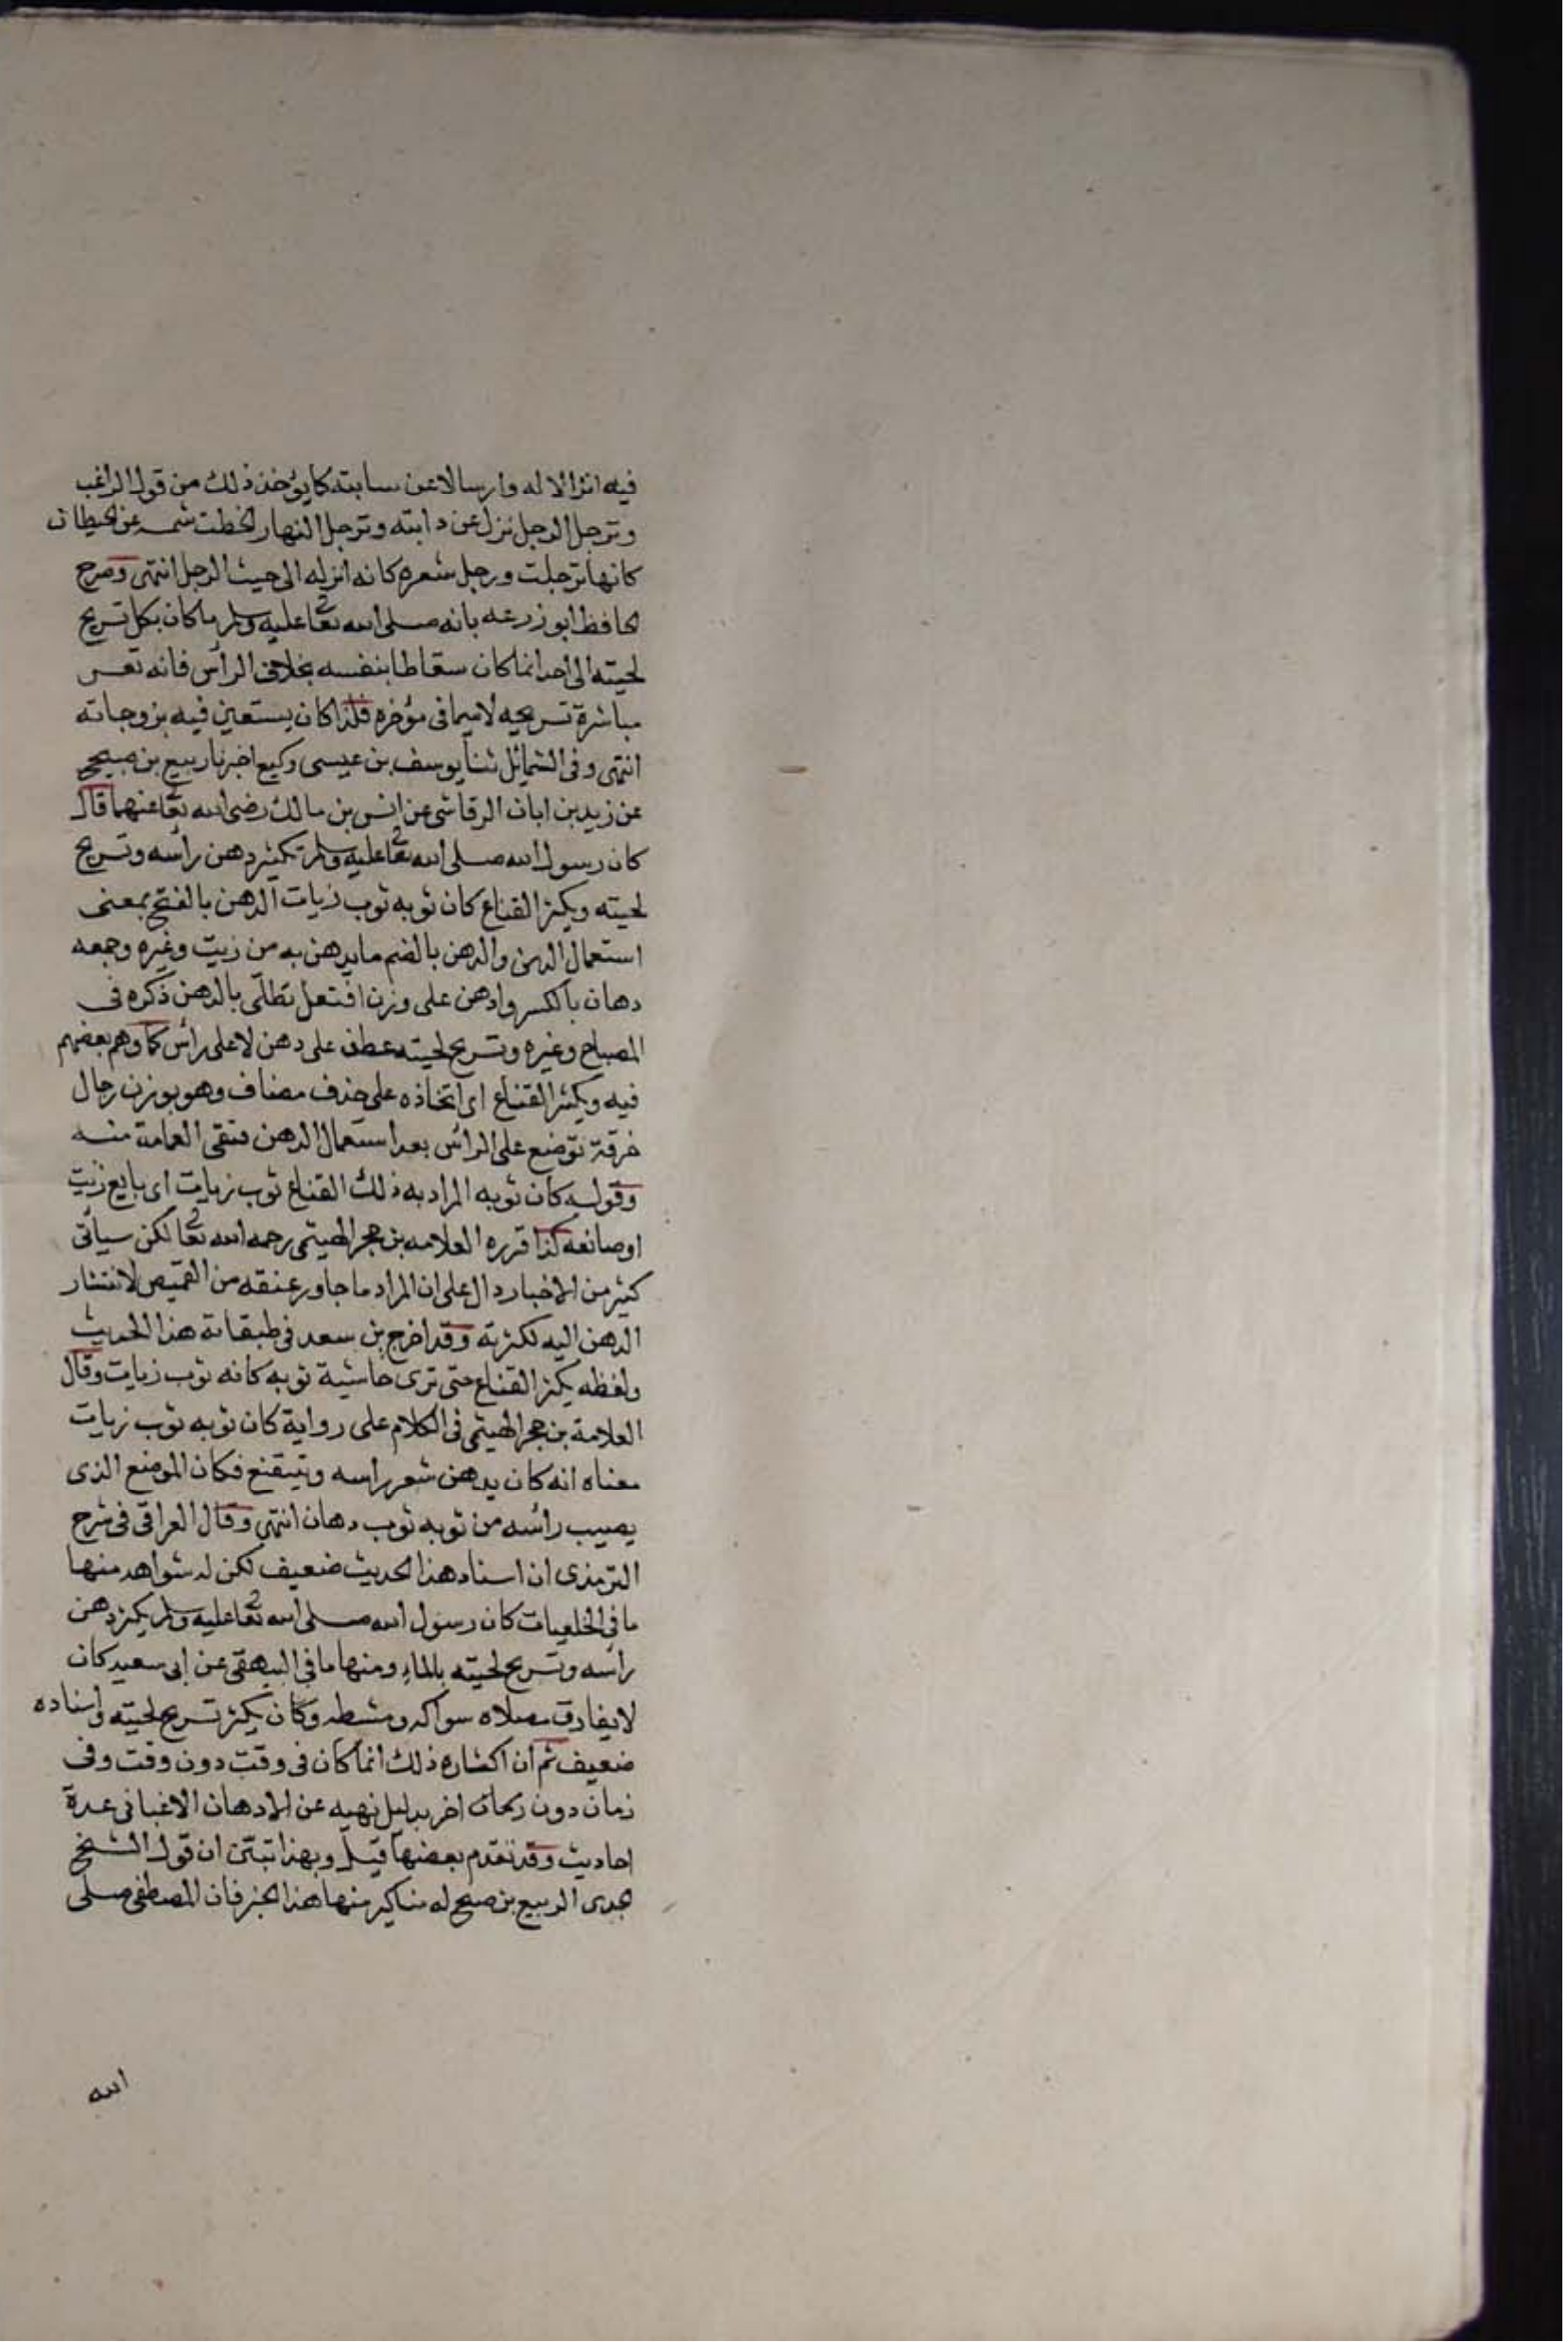 فيه انزالا له وارسالا عن سابته كما يؤخذ ذلك من قول الراغب
وترجل الرجل نزل عن دابته وترجل النهار انحطت شمسه عن الحيطان
كانها ترجلت ورجل شعره كانه انزله الى حيث الرجل انتهى وصرح
الحافظ ابو زرعه بانه صلى الله تعا عليه وسلم ما كان يكل تسريح
لحيته الى احد انما كان يتعاطا بنفسه بخلاف الرأس فانه تعسر
مباشرة تسريحه لاسيما فى مؤخره فلذا كان يستعين فيه بزوجاته
انتهى وفى الشمائل ثنا يوسف بن عيسى وكيع اخبرنا ربيع بن صبيح
عن زيد بن ابان الرقاشى عن انس بن مالك رضى الله تعا عنهما قال
كان رسول الله صلى الله تعا عليه وسلم تكثير دهن رأسه وتسريح
لحيته ويكثر القناع كان ثوبه ثوب زيات الدهن بالفتح بمعنى
استعمال الدهن والدهن بالضم ما يدهن به من زيت وغيره وجمعه
دهان بالكسر وادهن على وزن افتعل تطلى بالدهن ذكره فى
المصباح وغيره وتسريح لحيته عطف على دهن لا على رأس كما وهم بعضهم
فيه ويكثر القناع اى اتخاذه على حذف مضاف وهو بوزن رجال
خرقة توضع على الرأس بعد استعمال الدهن فتقى العمامة منه
وقوله كان ثوبه المراد به ذلك القناع ثوب زيات اى بايع زيت
او صانعه كذا قرره العلامه بن حجر الهيتمى رحمه الله تعا لكن سيأتى
كثير من الاخبار دال على ان المراد ما جاور عنقه من القميص لانتشار
الدهن اليه لكثرته وقد اخرج بن سعد فى طبقاته هذا الحديث
ولفظه يكثر القناع حتى ترى حاشية ثوبه كانه ثوب زيات وقال
العلامة بن حجر الهيتمى فى الكلام على رواية كان ثوبه ثوب زيات
معناه انه كان يدهن شعر راسه ويتقنع فكان الموضع الذى
يصيب رأسه من ثوبه ثوب دهان انتهى وقال العراقى فى شرح
الترمذى ان اسناد هذا الحديث ضعيف لكن له شواهد منها
ما فى الخلعيات كان رسول الله صلى الله تعا عليه وسلم يكثر دهن
رأسه وتسريح لحيته بالماء ومنها ما فى البيهقى عن ابى سعيد كان
لا يفارق مصلاه سواكه ومشطه وكان يكثر تسريح لحيته واسناده
ضعيف ثم ان اكثاره ذلك انما كان فى وقت دون وقت وفى
زمان دون زمان اخر بدليل نهيه عن الادهان الا غبا فى عدة
احاديث وقد تقدم بعضها قبل وبهذا تبين ان قول الشيخ
الجدى الربيع بن صبيح له مناكير منها هذا الخبر فان المصطفى صلى
الله